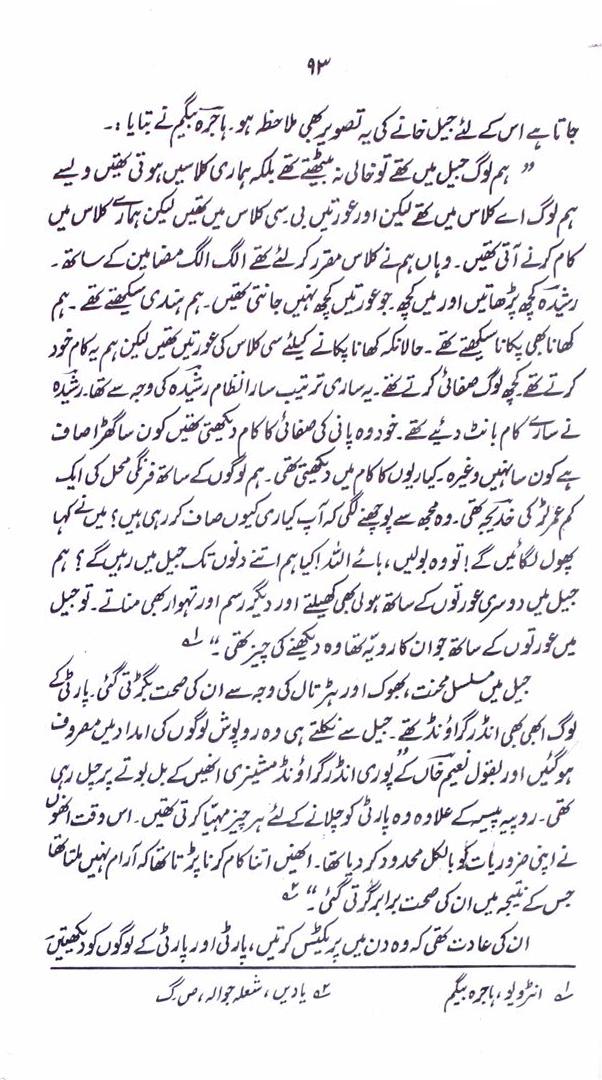 ۹۳
جاتا ہے اس کے لئے جیل خانے کی یہ تصویر بھی ملاحظہ ہو۔ ہاجرہ بیگم نے بتایا :۔
” ہم لوگ جیل میں تھے تو خالی نہ بیٹھتے تھے بلکہ ہماری کلاسیں ہوتی تھیں ویسے
ہم لوگ اے کلاس میں تھے لیکن اور عورتیں بی سی کلاس میں تھیں لیکن ہمارے کلاس میں
کام کرنے آتی تھیں۔ وہاں ہم نے کلاس مقرر کر لئے تھے الگ الگ مضامین کے ساتھ۔
رشیدہ کچھ پڑھاتیں اور میں کچھ۔ جو عورتیں کچھ نہیں جانتی تھیں۔ ہم ہندی سیکھتے تھے ۔ ہم
کھانا بھی پکانا سیکھتے تھے۔ حالانکہ کھانا پکانے کیلئے سی کلاس کی عورتیں تھیں لیکن ہم یہ کام خود
کرتے تھے۔ کچھ لوگ صفائی کرتے تھے۔ یہ ساری ترتیب سارا انتظام رشیدہ کی وجہ سے تھا۔ رشیدہ
نے سارے کام بانٹ دئیے تھے۔ خود وہ پانی کی صفائی کا کام دیکھتی تھیں کون سا گھڑا صاف
ہے کون سا نہیں وغیرہ۔ کیاریوں کا کام میں دیکھتی تھی۔ ہم لوگوں کے ساتھ فرنگی محل کی ایک
کم عمر لڑکی خدیجہ تھی۔ وہ مجھ سے پوچھنے لگی کہ آپ کیاری کیوں صاف کر رہی ہیں؟ میں نے کہا
پھول لگائیں گے! تو وہ بولیں، ہائے اللہ! کیا ہم اتنے دنوں تک جیل میں رہیں گے؟ ہم
جیل میں دوسری عورتوں کے ساتھ ہولی بھی کھیلتے اور دیگر رسم اور تہوار بھی مناتے۔ تو جیل
میں عورتوں کے ساتھ جو ان کا رویہ تھا وہ دیکھنے کی چیز تھی۔“ ۱؎
جیل میں مسلسل محنت، بھوک اور ہڑتال کی وجہ سے ان کی صحت بگڑتی گئی۔ پارٹی کے
لوگ ابھی بھی انڈر گراؤنڈ تھے۔ جیل سے نکلتے ہی وہ روپوش لوگوں کی امداد میں مصروف
ہو گئیں اور بقول نعیم خاں کے ”پوری انڈر گراؤنڈ مشینری انھیں کے بل بوتے پر چل رہی
تھی۔ روپیہ پیسہ کے علاوہ وہ پارٹی کو چلانے کے لئے ہر چیز مہیا کرتی تھیں۔ اس وقت انھوں
نے اپنی ضروریات کو بالکل محدود کر دیا تھا۔ انھیں اتنا کام کرنا پڑتا تھا کہ آرام نہیں ملتا تھا
جس کے نتیجہ میں ان کی صحت برابر گرتی گئی۔“ ۲؎
ان کی عادت تھی کہ وہ دن میں پریکٹس کرتیں، پارٹی اور پارٹی کے لوگوں کو دیکھتیں
۱؎ انٹرویو، ہاجرہ بیگم ۲؎ یادیں، شعلہ جوالہ، ص گ